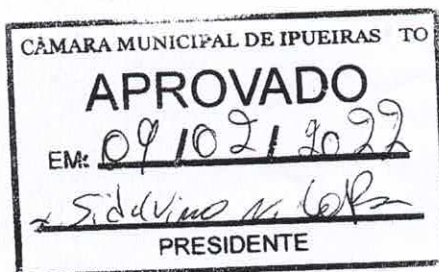 CÂMARA MUNICIPAL DE IPUEIRAS TO
APROVADO
EM: 09/02/2022
Sidelvino
PRESIDENTE